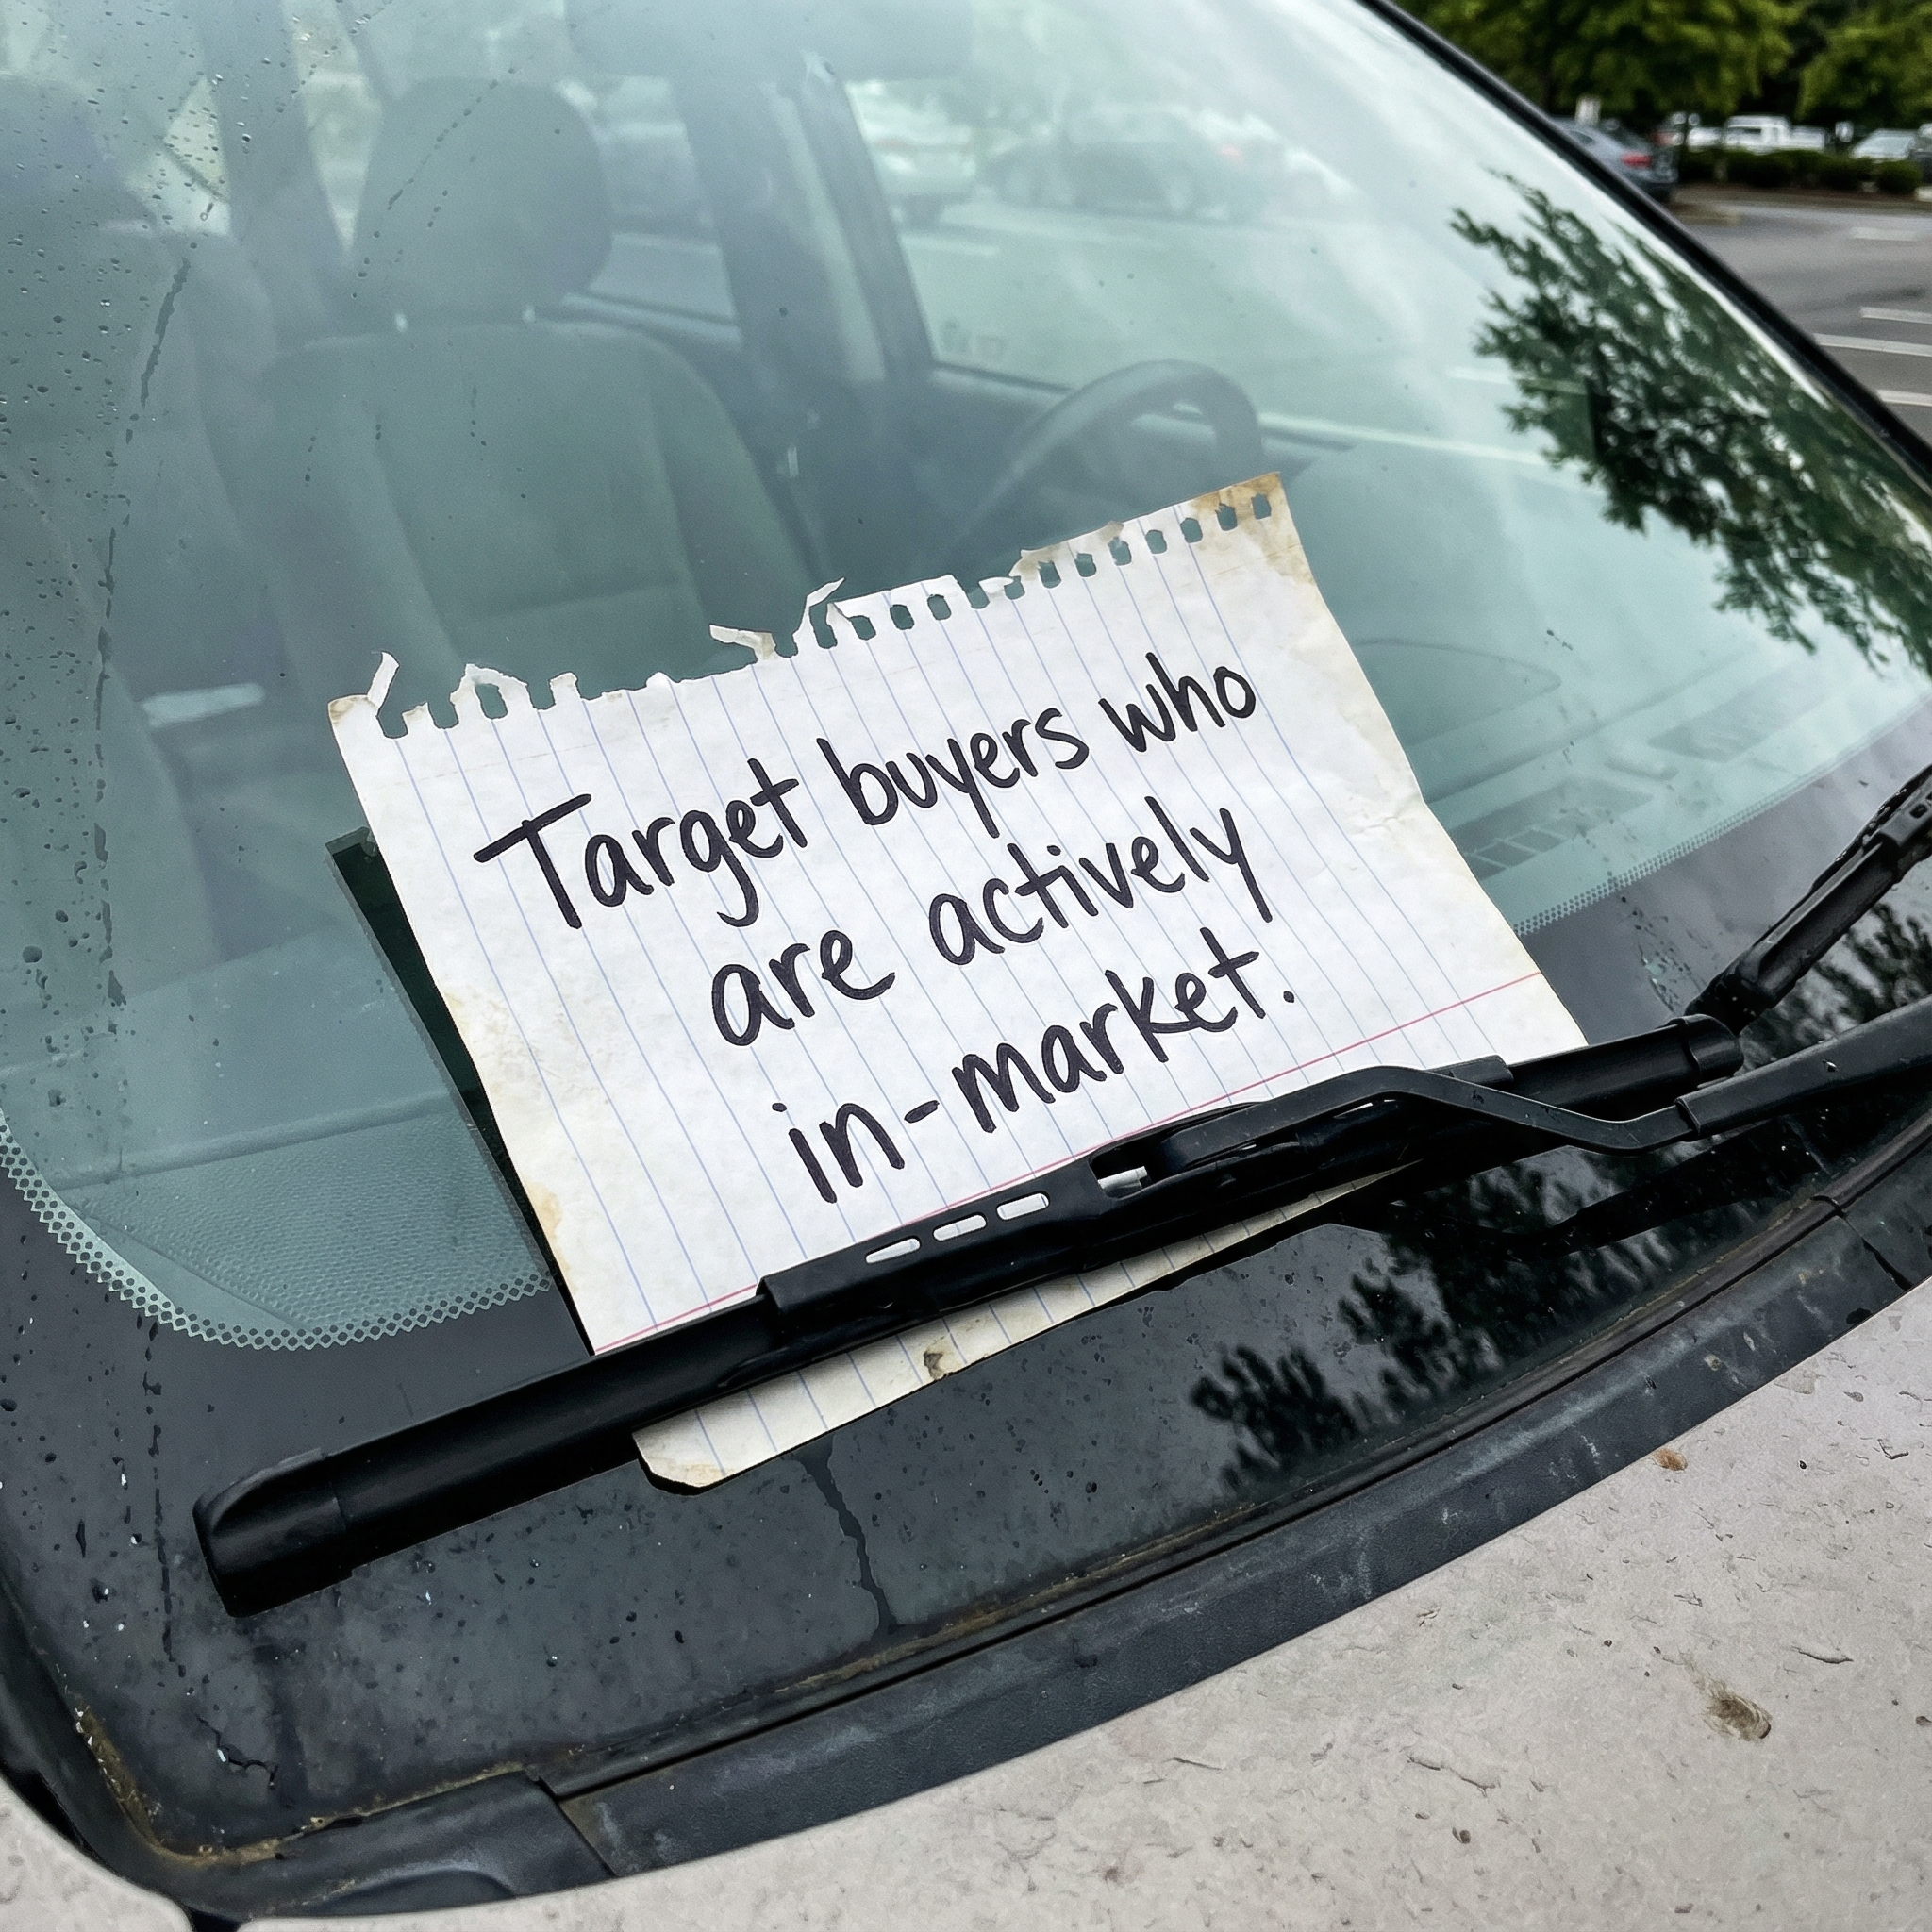 Target buyers who
are actively
in-market.